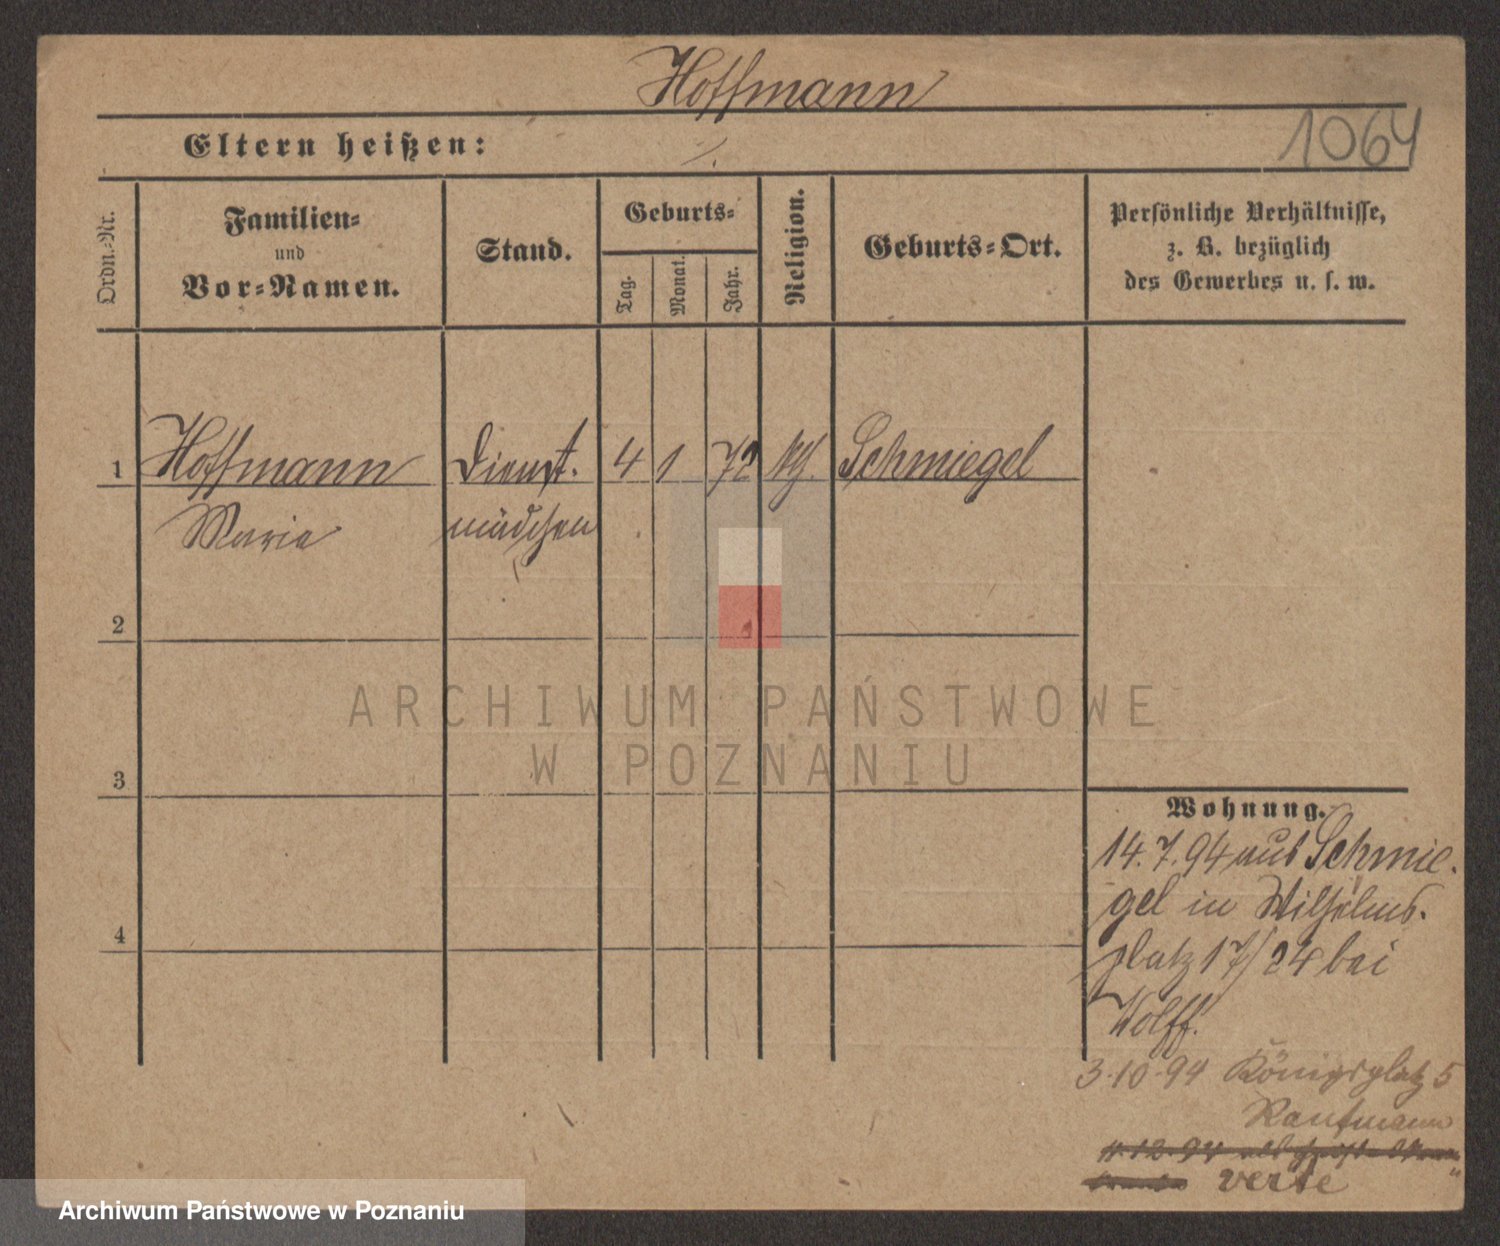 Hoffmann
1064
Eltern heißen: /.
Ordn.-Nr.
Familien-
und
Vor-Namen.
Stand.
Geburts-
Tag.
Monat.
Jahr.
Religion.
Geburts-Ort.
Persönliche Verhältnisse,
z. B. bezüglich
des Gewerbes u. s. w.
1 Hoffmann Dienst. 4 1 72 Schmiegel
Marie mädchen
2
ARCHIWUM PAŃSTWOWE
W POZNANIU
3
Wohnung.
14.7.94 aus Schmie.
gel in Wilhelms.
4
platz 17/24 bei
Wolff.
3.10.94 Königsplatz 5
Kaufmann
verte
Archiwum Państwowe w Poznaniu